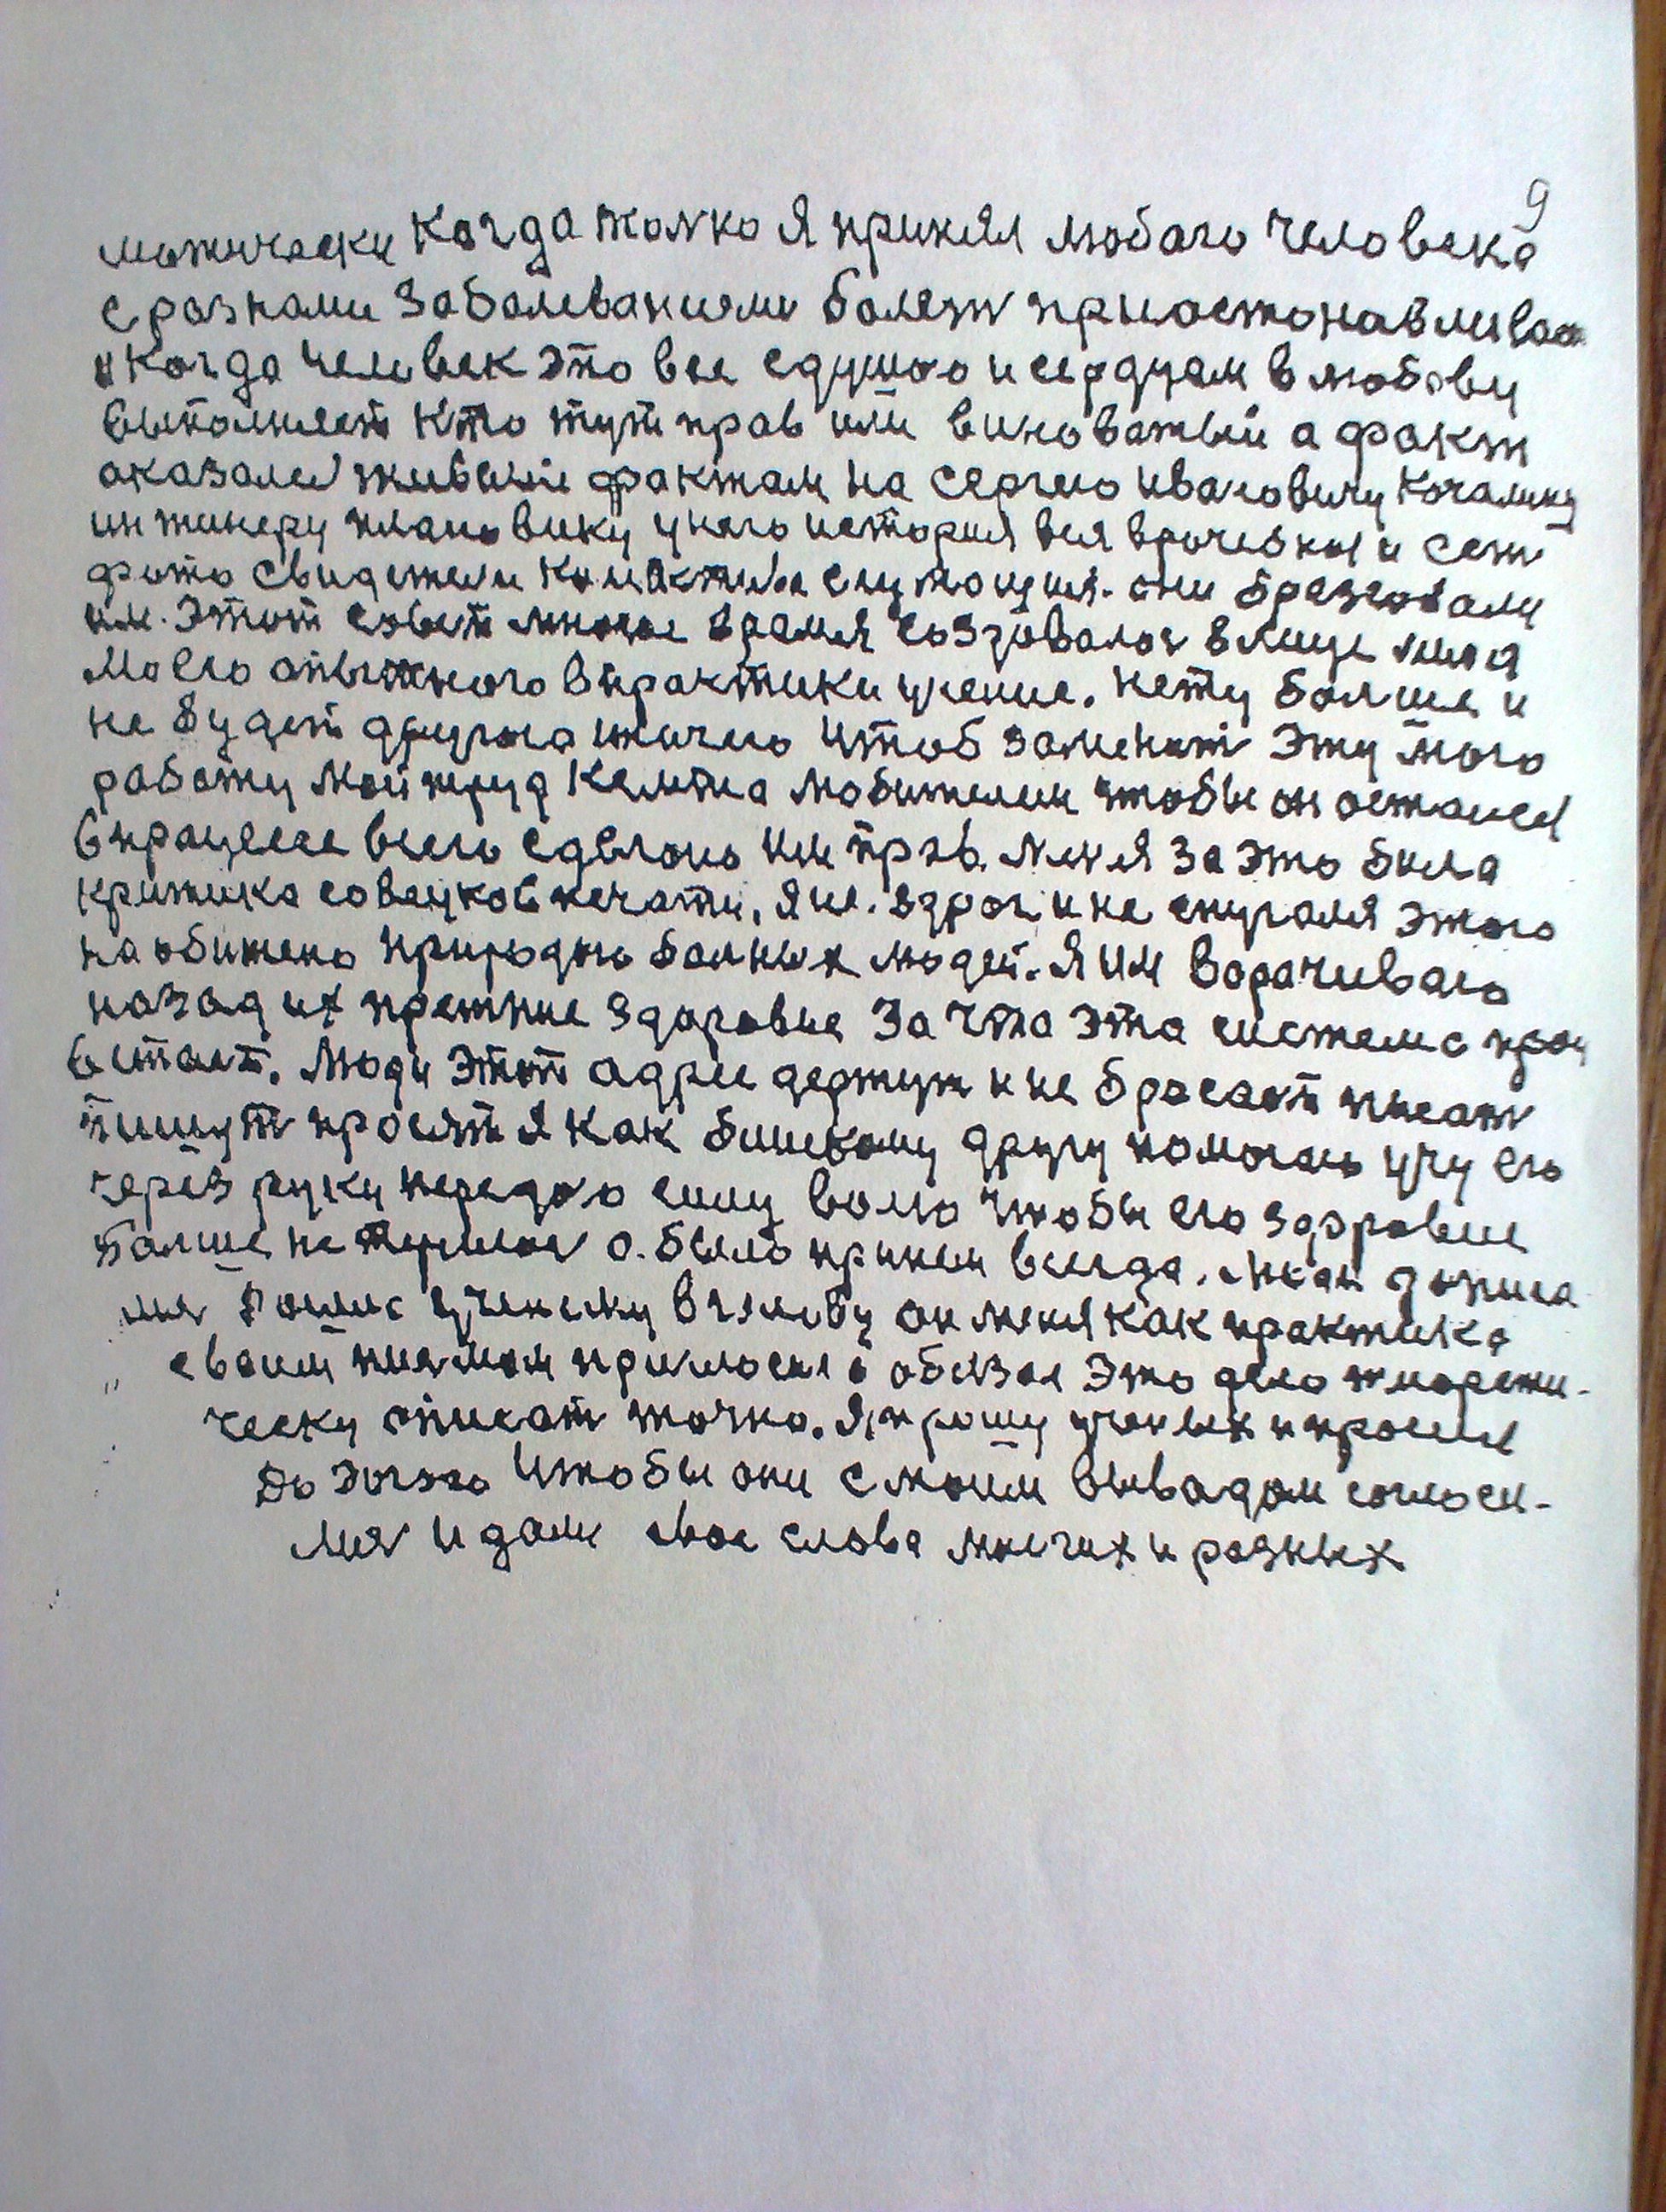 9
матически когда толко я принял любого человека
с разнами заболеваниями болезн приостонавливаю
и когда человек это все сдушою и сердцем в любови
выполняет кто тут прав или виноватый а факт
оказался живым фактам на Сергею Ивановичу Качалину
инжинеру плановику у него история вся врачебная и сам
фото свидетели они
им. Этот совет многое время создовался в лице меня
Моего опытного впрактики учение. нету болше и
не будет другога ничего чтоб заменит эту мою
работу мой труд любителем чтобы он остался
в процессе всего сделоно им прав. меня за это била
критика печати, я не. вдрог и не спугался этого
на обижено природою болных людей. я им ворачиваю
назад их прежние здоровие за что эта система
встает. Люди этот адрес держут и не бросают писат
пишут просят я как близкому другу помогаю учу его
через руки передаю силу волю чтобы его здоровие
болше не терялос а. было при нем всегда.
ученему он меня как практика
своим писмом пригласил и обязал это дело теорети-
чески описат точно. Я прошу ученых и просил
до этого чтобы они с моим вывадом согласи-
лис и дали свое слова многих и разных